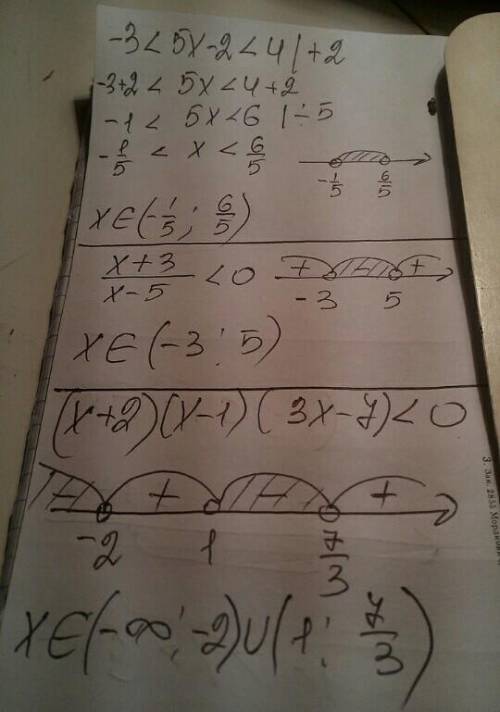 -3 < 5x-2 < 4 | +2
-3+2 < 5x < 4+2
-1 < 5x < 6 | ÷ 5
-1/5 < x < 6/5
-1/5 6/5
x∈(-1/5 ; 6/5)
x+3/x-5 < 0
+ - +
-3 5
x∈(-3 ; 5)
(x+2)(x-1)(3x-7) < 0
- + - +
-2 1 7/3
x∈(-∞; -2)∪(1; 7/3)